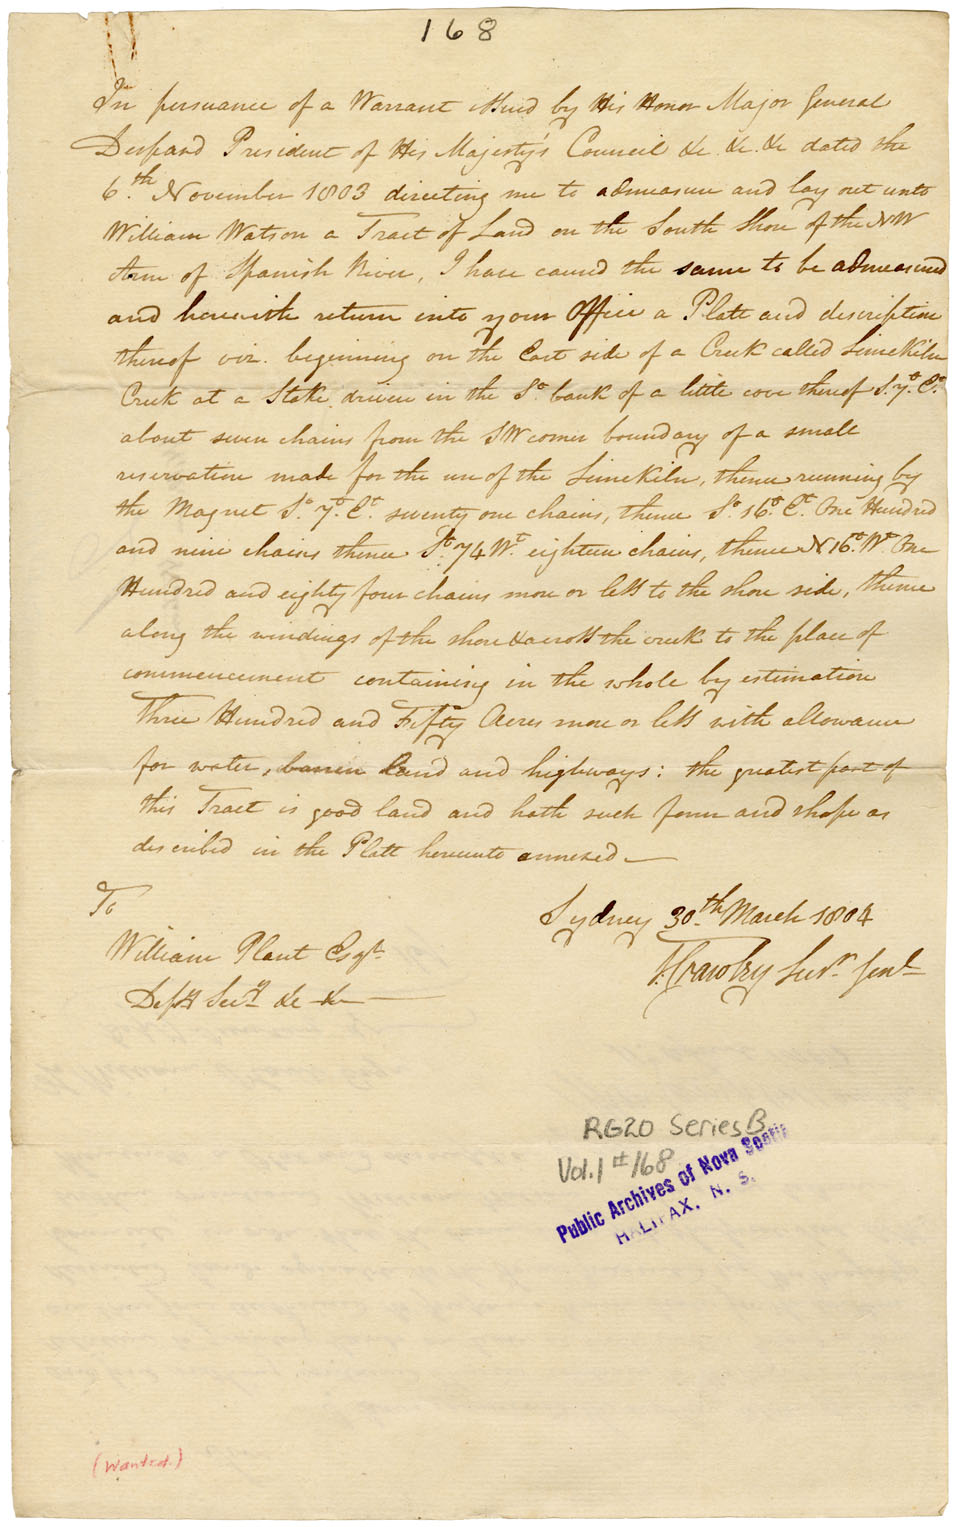 168
In persuance of a Warrant issued by His Honor Major General
Despard President of His Majesty's Council &c. &c. &c dated the
6th. November 1803 directing me to admeasure and lay out unto
William Watson a Tract of Land on the South Shore of the NW
Arm of Spanish River, I have caused the same to be admeasured
and herewith return into your Office a Platt and discription
thereof viz. beginning on the East side of a Creek called LimeKiln
Creek at a Stake driven in the So. bank of a little cove thereof S. 7o. Et.
about seven chains from the SW corner boundary of a small
reservation made for the use of the LimeKiln, thence running by
the Magnet So. 7o. Et. seventy one chains, thence So. 16o. Et. One Hundred
and nine chains thence So. 74 Wt. eighteen chains, thence N 16o. Wt. One
Hundred and eighty four chains more or less to the shore side, thence
along the windings of the shore & across the creek to the place of
commencement containing in the whole by estimation
Three Hundred and Fifty Acres more or less with allowance
for water, barren land and highways: the greatest part of
this Tract is good land and hath such form and shape as
described in the Platt hereunto annexed
To
William Plant Esqr.
Depy Secy &c &c
Sydney 30th March 1804
T Crawley Survr. Genl
RG20 Series B
Vol. 1 #168
Public Archives of Nova Scotia
HALIFAX, N. S.
(Wanted.)